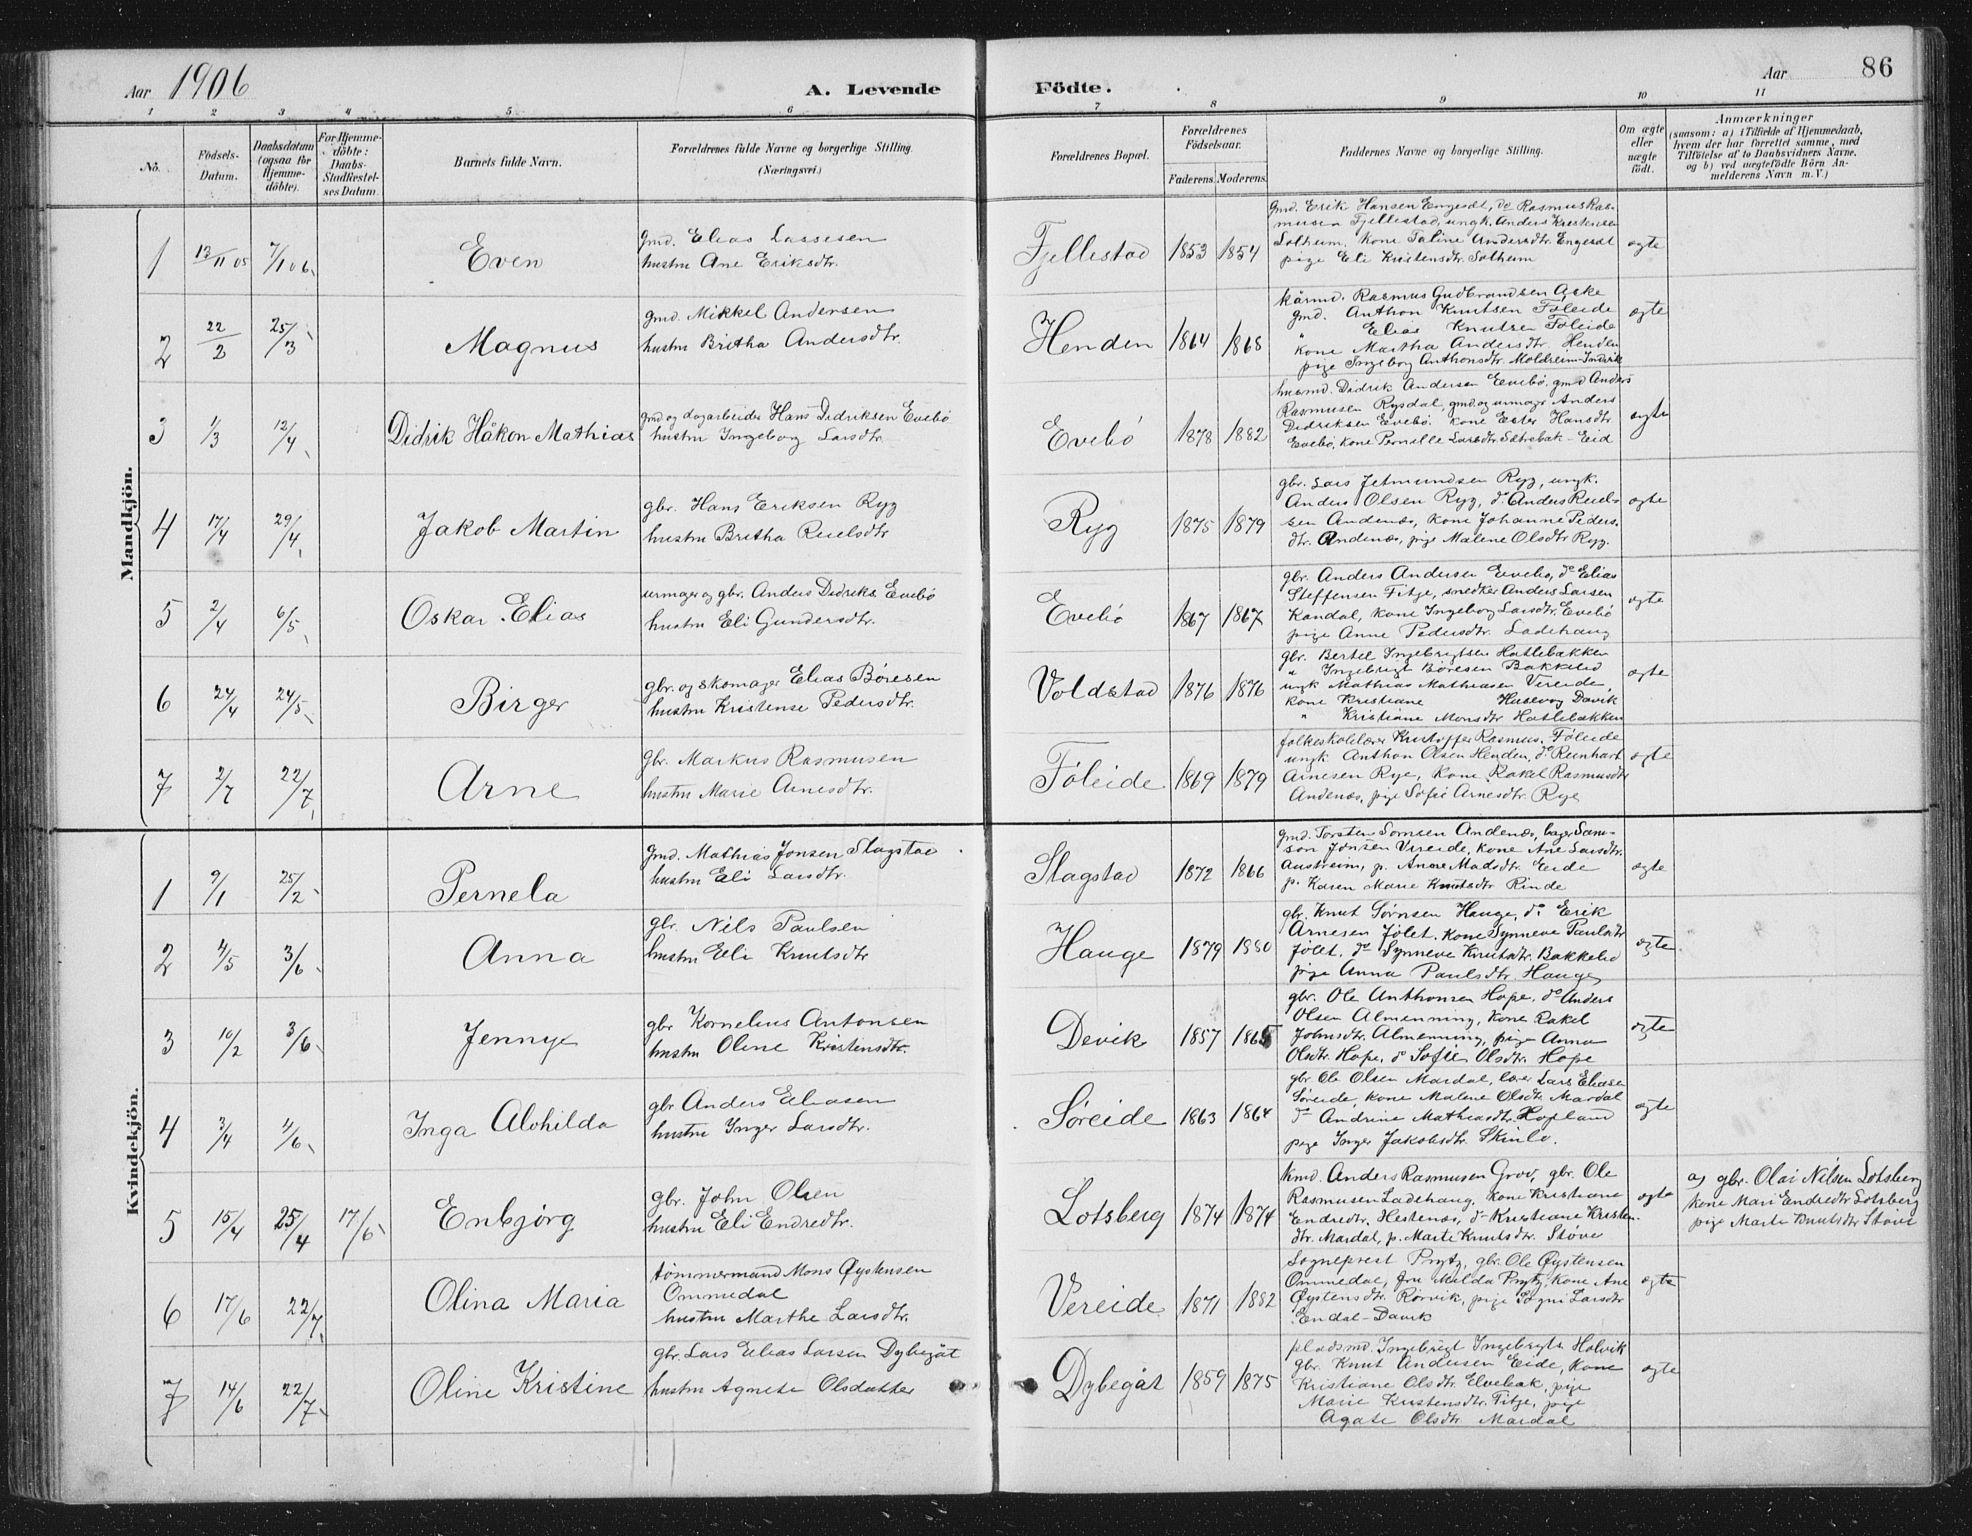 Aar 1906
A. Levende Födte.
Aar
86
1 2 3 4 5 6 7 8 9 10 11
No.
Födsels-Datum.
Daabsdatum (ogsaa for Hjemme-döbte).
For Hjemme-döbte: Daabs-Stadfæstel-ses Datum.
Barnets fulde Navn.
Forældrenes fulde Navne og borgerlige Stilling. (Næringsvei.)
Forældrenes Bopæl.
Forældrenes Födselsaar.
Faderens. Moderens.
Faddernes Navne og borgerlige Stilling.
Om ægte eller uægte født.
Anmærkninger
(saasom: a) i Tilfælde af Hjemmedaab,
hvem der har forrettet samme, med
Tilföielse af to Daabsvidners Navne,
og b) ved uægtefödte Börn An-
melderens Navn m.V.)
Mandkjön.
1 13/11 05 7/1 06. Even
gmd. Elias Lassesen
hustru Ane Eriksdtr.
Fjellestad 1853 1854
gmd. Erik Hansen Engesæt, do Rasmus Ras-
musen Fjellestad, ungk. Anders Kristensen
Solheim. kone Taline Andersdtr. Engesæt
pige Eli Kristensdtr. Solheim
ægte
2 22/2 25/3 Magnus
gmd. Mikkel Andersen
hustru Britha Andersdtr.
Henden 1864 1868
kårmd. Rasmus Gudbrandsen Aske
gmd. Anthon Knutsen Føleide
" Elias Knutsen Føleide
kone Martha Andersdtr. Henden
pige Ingeborg Anthonsdtr. Moldreim-Indvik
ægte
3 1/3 12/4 Didrik Håkon Mathias
gmd og dagarbeider Hans Didriksen Evebø
hustru Ingeborg Larsdtr.
Evebø 1878 1882
husmd. Didrik Andersen Evebø. gmd Anders
Rasmusen Rygdal, gmd. og urmager Anders
Didriksen Evebø. kone Ester Hansdtr
Evebø, kone Pernille Larsdtr. Sætrebak - Eid
ægte
4 17/4 29/4 Jakob Martin
gbr. Hans Eriksen Ryg
hustru Britha Reielsdtr
Ryg 1875 1879
gbr. Lars Jetmundsen Ryg, ungk.
Anders Olsen Ryg, do Anders Reiel-
sen Andenæs, kone Johanne Peders-
dtr. Andenæs, pige Malene Olsdtr Ryg.
ægte
5 2/4 6/5 Oskar Elias
urmager og gbr. Anders Didriks. Evebø
hustru Eli Gundersdtr.
Evebø 1867 1867
gbr. Anders Andersen Evebø, do Elias
Steffensen Fitje, snedker Anders Larsen
Kandal, kone Ingeborg Larsdtr. Evebø
pige Anne Pedersdtr. Ladehaug
ægte
6 24/4 24/5 Birger
gbr. og skomager Elias Børesen
hustru Kristense Pedersdtr.
Voldstad 1876 1876
gbr. Bertel Ingebrigtsen Hatlebækken
" Ingebrigt Børesen Bakkelid
ungk Mathias Mathiasen Vereide
kone Kristiane Husevog Davik
" Kristiane Monsdtr Hatlebækken
ægte
7 2/7 22/7 Arne
gbr. Markus Rasmusen
hustru Marie Arnesdtr.
Føleide 1869 1879
folkeskolelærer Kristoffer Rasmus. Føleide
ungk. Anthon Olsen Henden, do Reinhart
Arnesen Rye, kone Rakel Rasmusdtr
Andenæs, pige Sofie Arnesdtr. Rye
ægte
Kvindekjön.
1 9/1 25/2 Pernela
gmd. Mathias Jonsen Slagstad
hustru Eli Larsdtr.
Slagstad 1872 1866
gmd. Torsten Sørnsen Andenæs, bager Sam-
son Jonsen Vereide, kone Ane Larsdtr.
Austreim, p. Anne Madsdtr. Eide
p. Karen Marie Knutsdtr Rinde
ægte
2 4/5 3/6 Anna
gbr. Nils Paulsen
hustru Eli Knutsdtr
Hauge 1879 1880
gbr. Knut Sørnsen Hauge, do. Erik
Arnesen Jølet. kone Synneve Paulsdtr
Jølet. do Synneve Knutsdtr. Bakkelid
pige Anna Paulsdtr. Hauge
ægte
3 10/2 3/6 Jennye
gbr Kornelius Antonsen
hustru Oline Kristensdtr.
Devik 1857 1865
gbr. Ole Anthonsen Hope, do Anders
Olsen Almenning, kone Rakel
Johnsdtr. Almenning, pige Anna
Olsdtr. Hope, do Sofie Olsdtr. Hope
ægte
4 3/4 4/6 Inga Alvhilda
gbr Anders Eliasen
hustru Inger Larsdtr.
Søreide 1863 1864
gbr Ole Olsen Mardal, lærer Lars Eliasen
Søreide, kone Malene Olsdtr Mardal
do Andrine Mathiasdtr. Hopland
pige Inger Jakobsdtr. Skinlo.
ægte
5 15/4 25/4 17/6 Enbjørg
gbr. John Olsen
hustru Eli Endredtr.
Lotsberg 1874 1874
kmd. Anders Rasmusen Grov, gbr. Ole
Rasmusen Ladehaug, kone Kristiane
Endredtr. Hestenæs, do Kristiane Kristen-
dtr. Mardal, p. Marte Knutsdtr. Støve
ægte
a) gbr. Olai Nilsen Lotsberg
kone Mari Endredtr Lotsberg
pige Marte Knutsdtr Støve
6 17/6 22/7 Olina Maria
tømmermand Mons Øystensen
Ommedal
hustru Marthe Larsdtr.
Vereide 1871 1882
Sogneprest Prytz, gbr. Ole Øystensen
Ommedal, fru Milda Prytz, kone Ane
Øystensdtr. Rørvik, pige Sogni Larsdtr
Endal - Davik
ægte
7 14/6 22/7 Oline Kristine
gbr. Lars Elias Larsen Dybegåt
hustru Agnete Olsdatter
Dybegåt 1859 1875
pladsmd. Ingebrigt Ingebrigts. Holvik
gbr. Knut Andersen Eide, kone
Kristiane Olsdtr. Elvebak, pige
Marie Kristensdtr. Fitje, pige
Agate Olsdtr Mardal
ægte